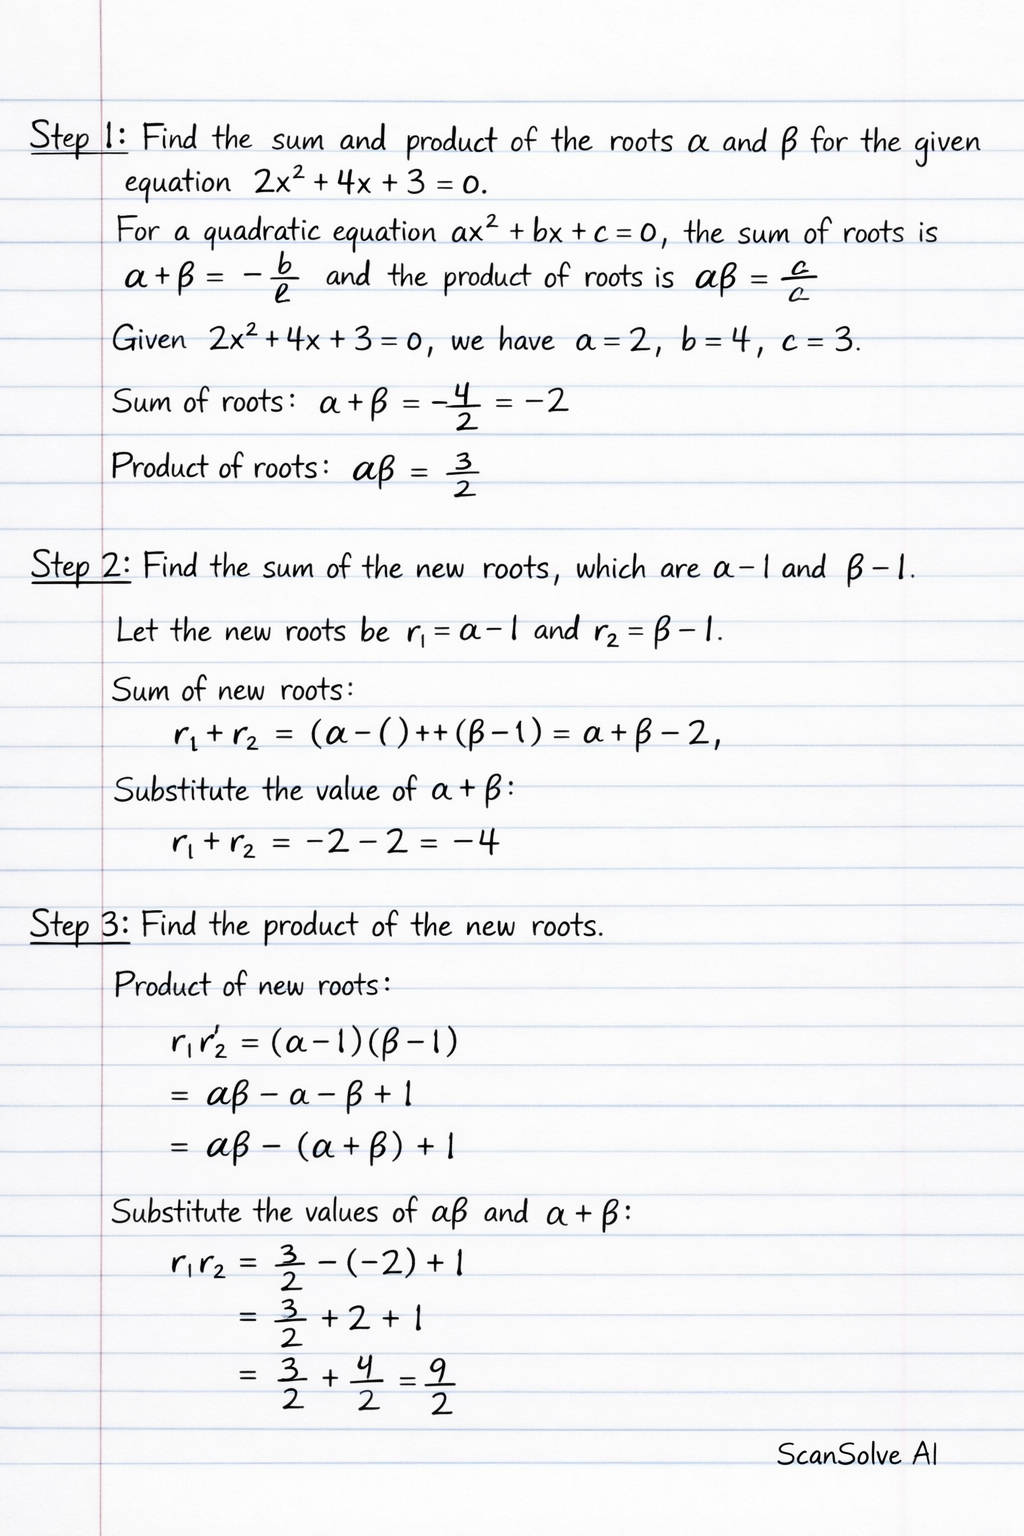 Step 1: Find the sum and product of the roots α and β for the given
equation 2x² + 4x + 3 = 0.
For a quadratic equation ax² + bx + c = 0, the sum of roots is
α + β = - b/e and the product of roots is αβ = c/c
Given 2x² + 4x + 3 = 0, we have a = 2, b = 4, c = 3.
Sum of roots: α + β = -4/2 = -2
Product of roots: αβ = 3/2
Step 2: Find the sum of the new roots, which are α - 1 and β - 1.
Let the new roots be r₁ = α - 1 and r₂ = β - 1.
Sum of new roots:
r₁ + r₂ = (α - () ++ (β - 1) = α + β - 2,
Substitute the value of α + β:
r₁ + r₂ = -2 - 2 = -4
Step 3: Find the product of the new roots.
Product of new roots:
r₁r'₂ = (α - 1)(β - 1)
= αβ - α - β + 1
= αβ - (α + β) + 1
Substitute the values of αβ and α + β:
r₁r₂ = 3/2 - (-2) + 1
= 3/2 + 2 + 1
= 3/2 + 4/2 = 9/2
ScanSolve AI